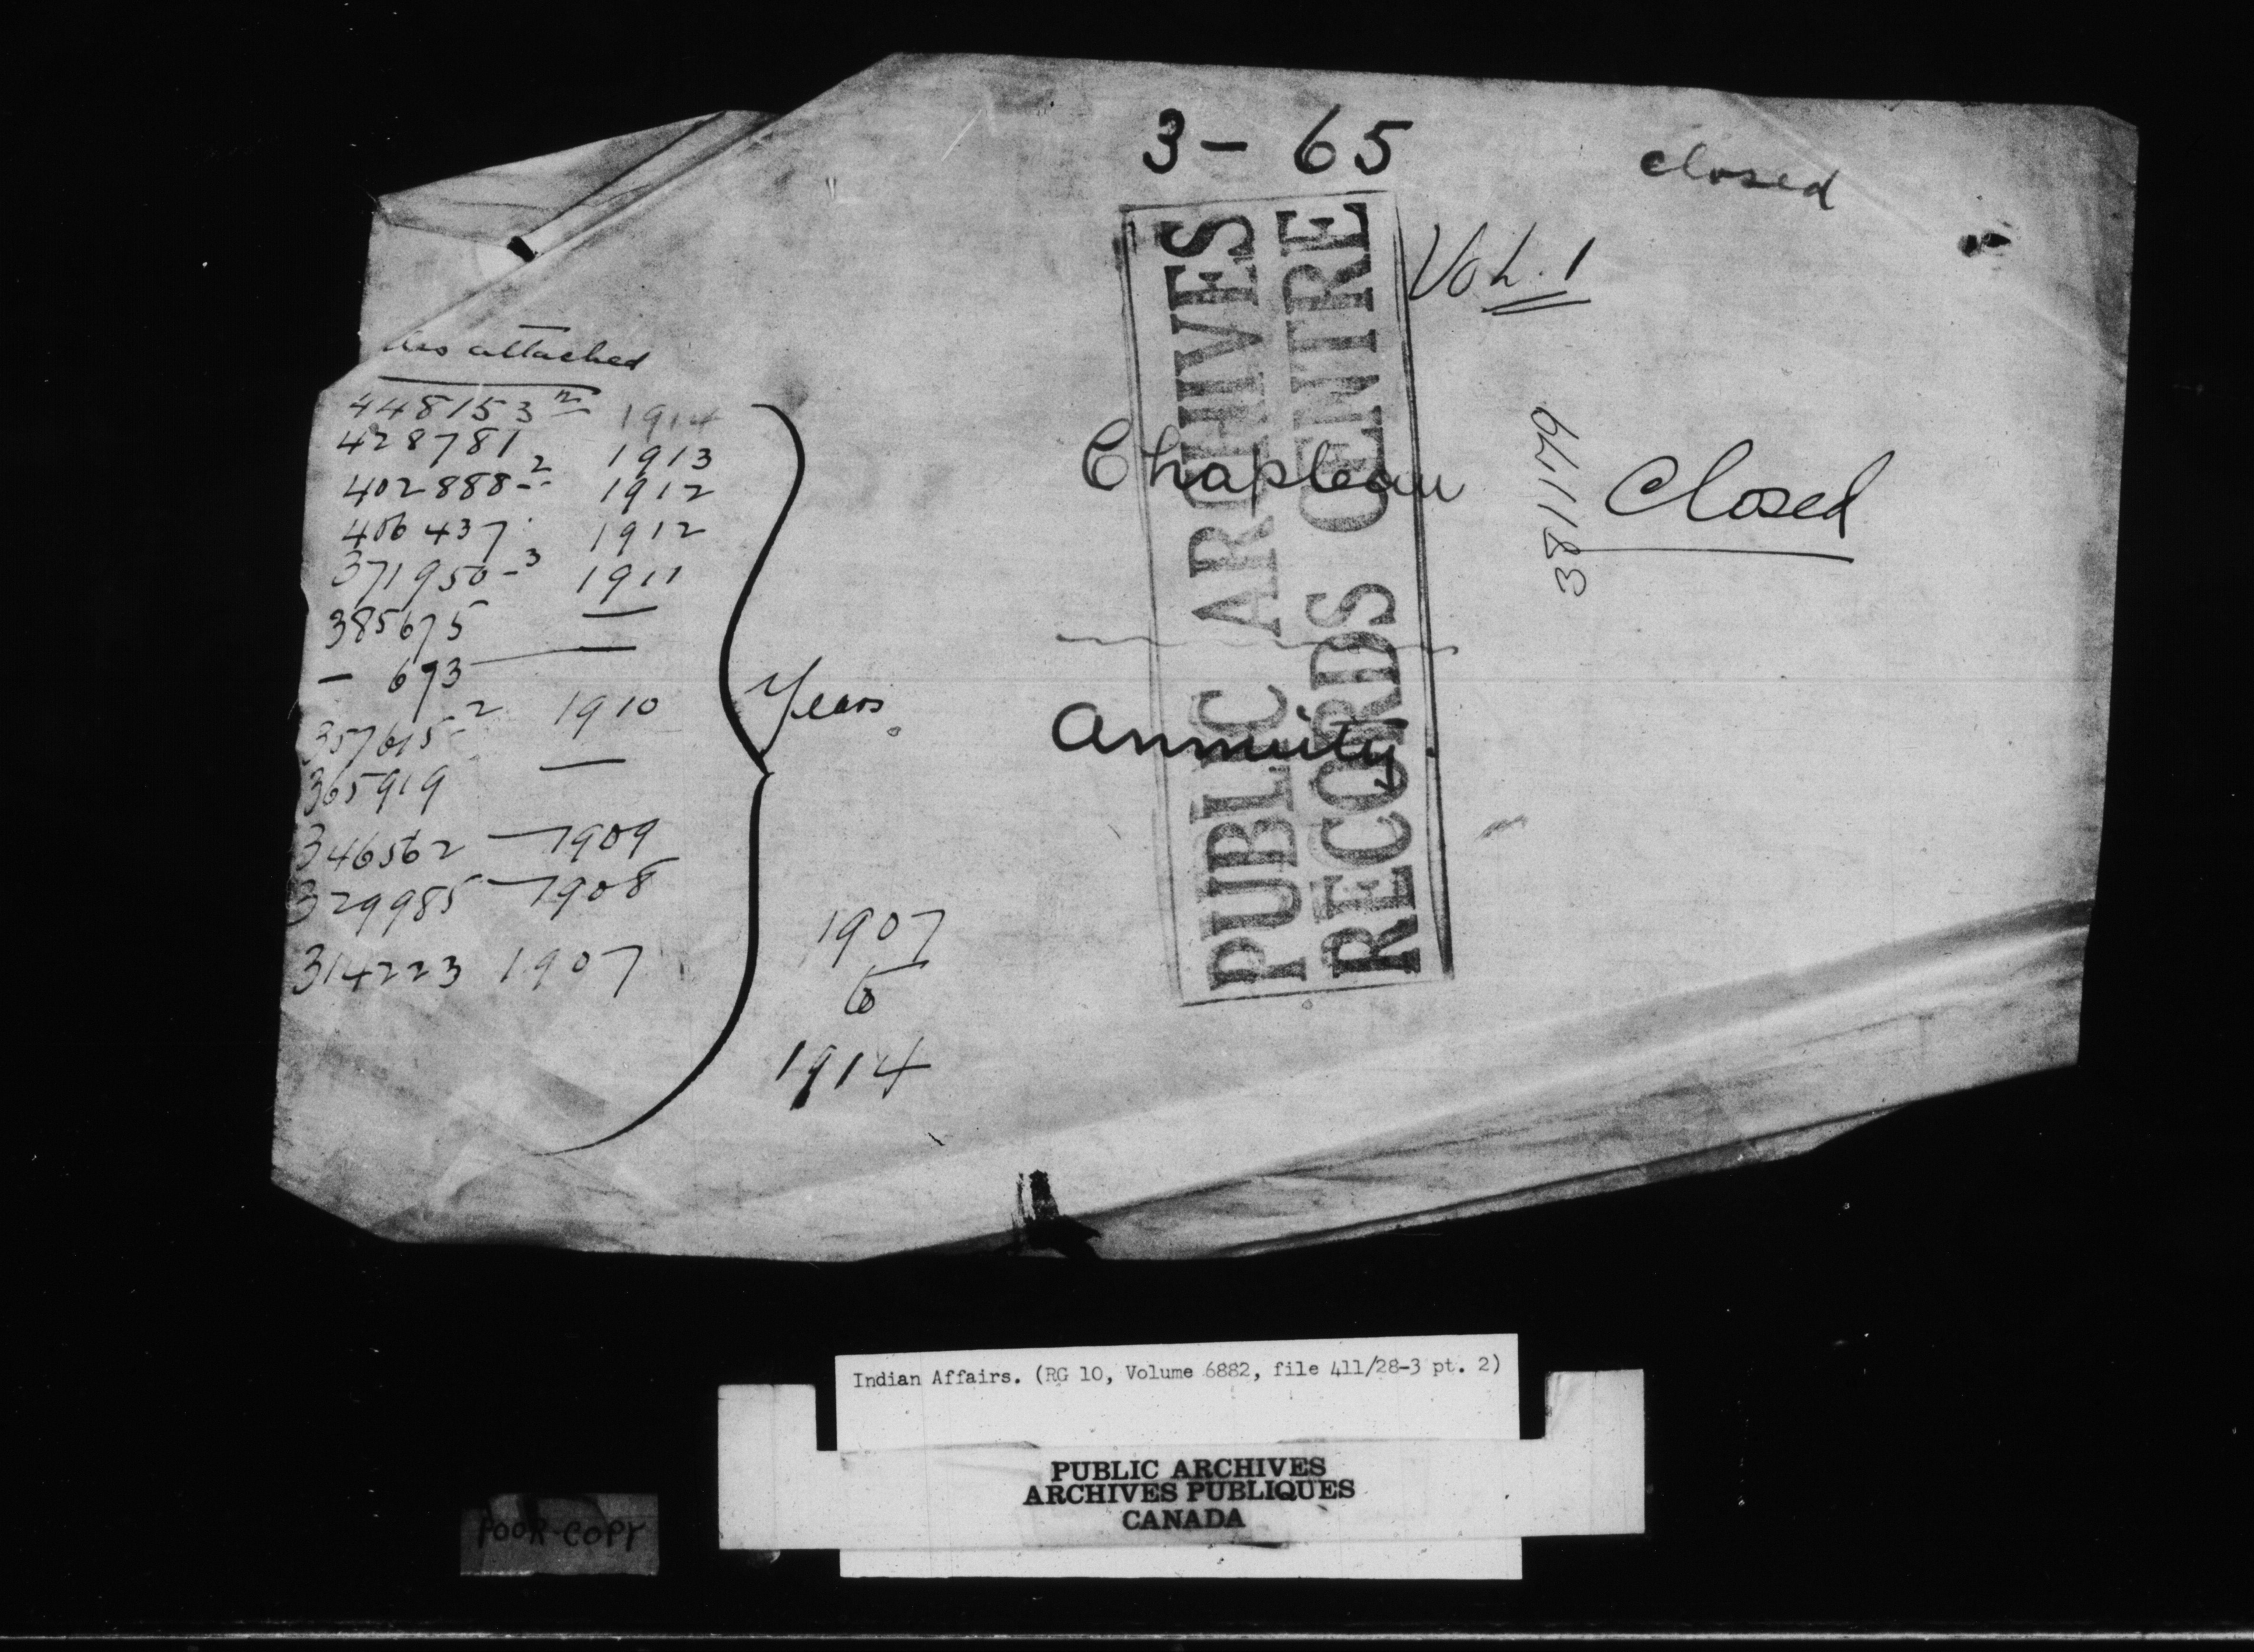 3 - 65
closed
Vol. 1
attached
448153 1914
428781 1913
402888-2 1912
406437 1912
371950-3 1911
385675 —
— 693 —
357615-2 1910
365919 —
346562 — 1909
329985 — 1908
314223 1907
Years
1907
to
1914
Chapleau
Annuity.
381179
Closed
PUBLIC ARCHIVES
RECORDS CENTRE
Indian Affairs. (RG 10, Volume 6882, file 411/28-3 pt. 2)
PUBLIC ARCHIVES
ARCHIVES PUBLIQUES
CANADA
POOR COPY